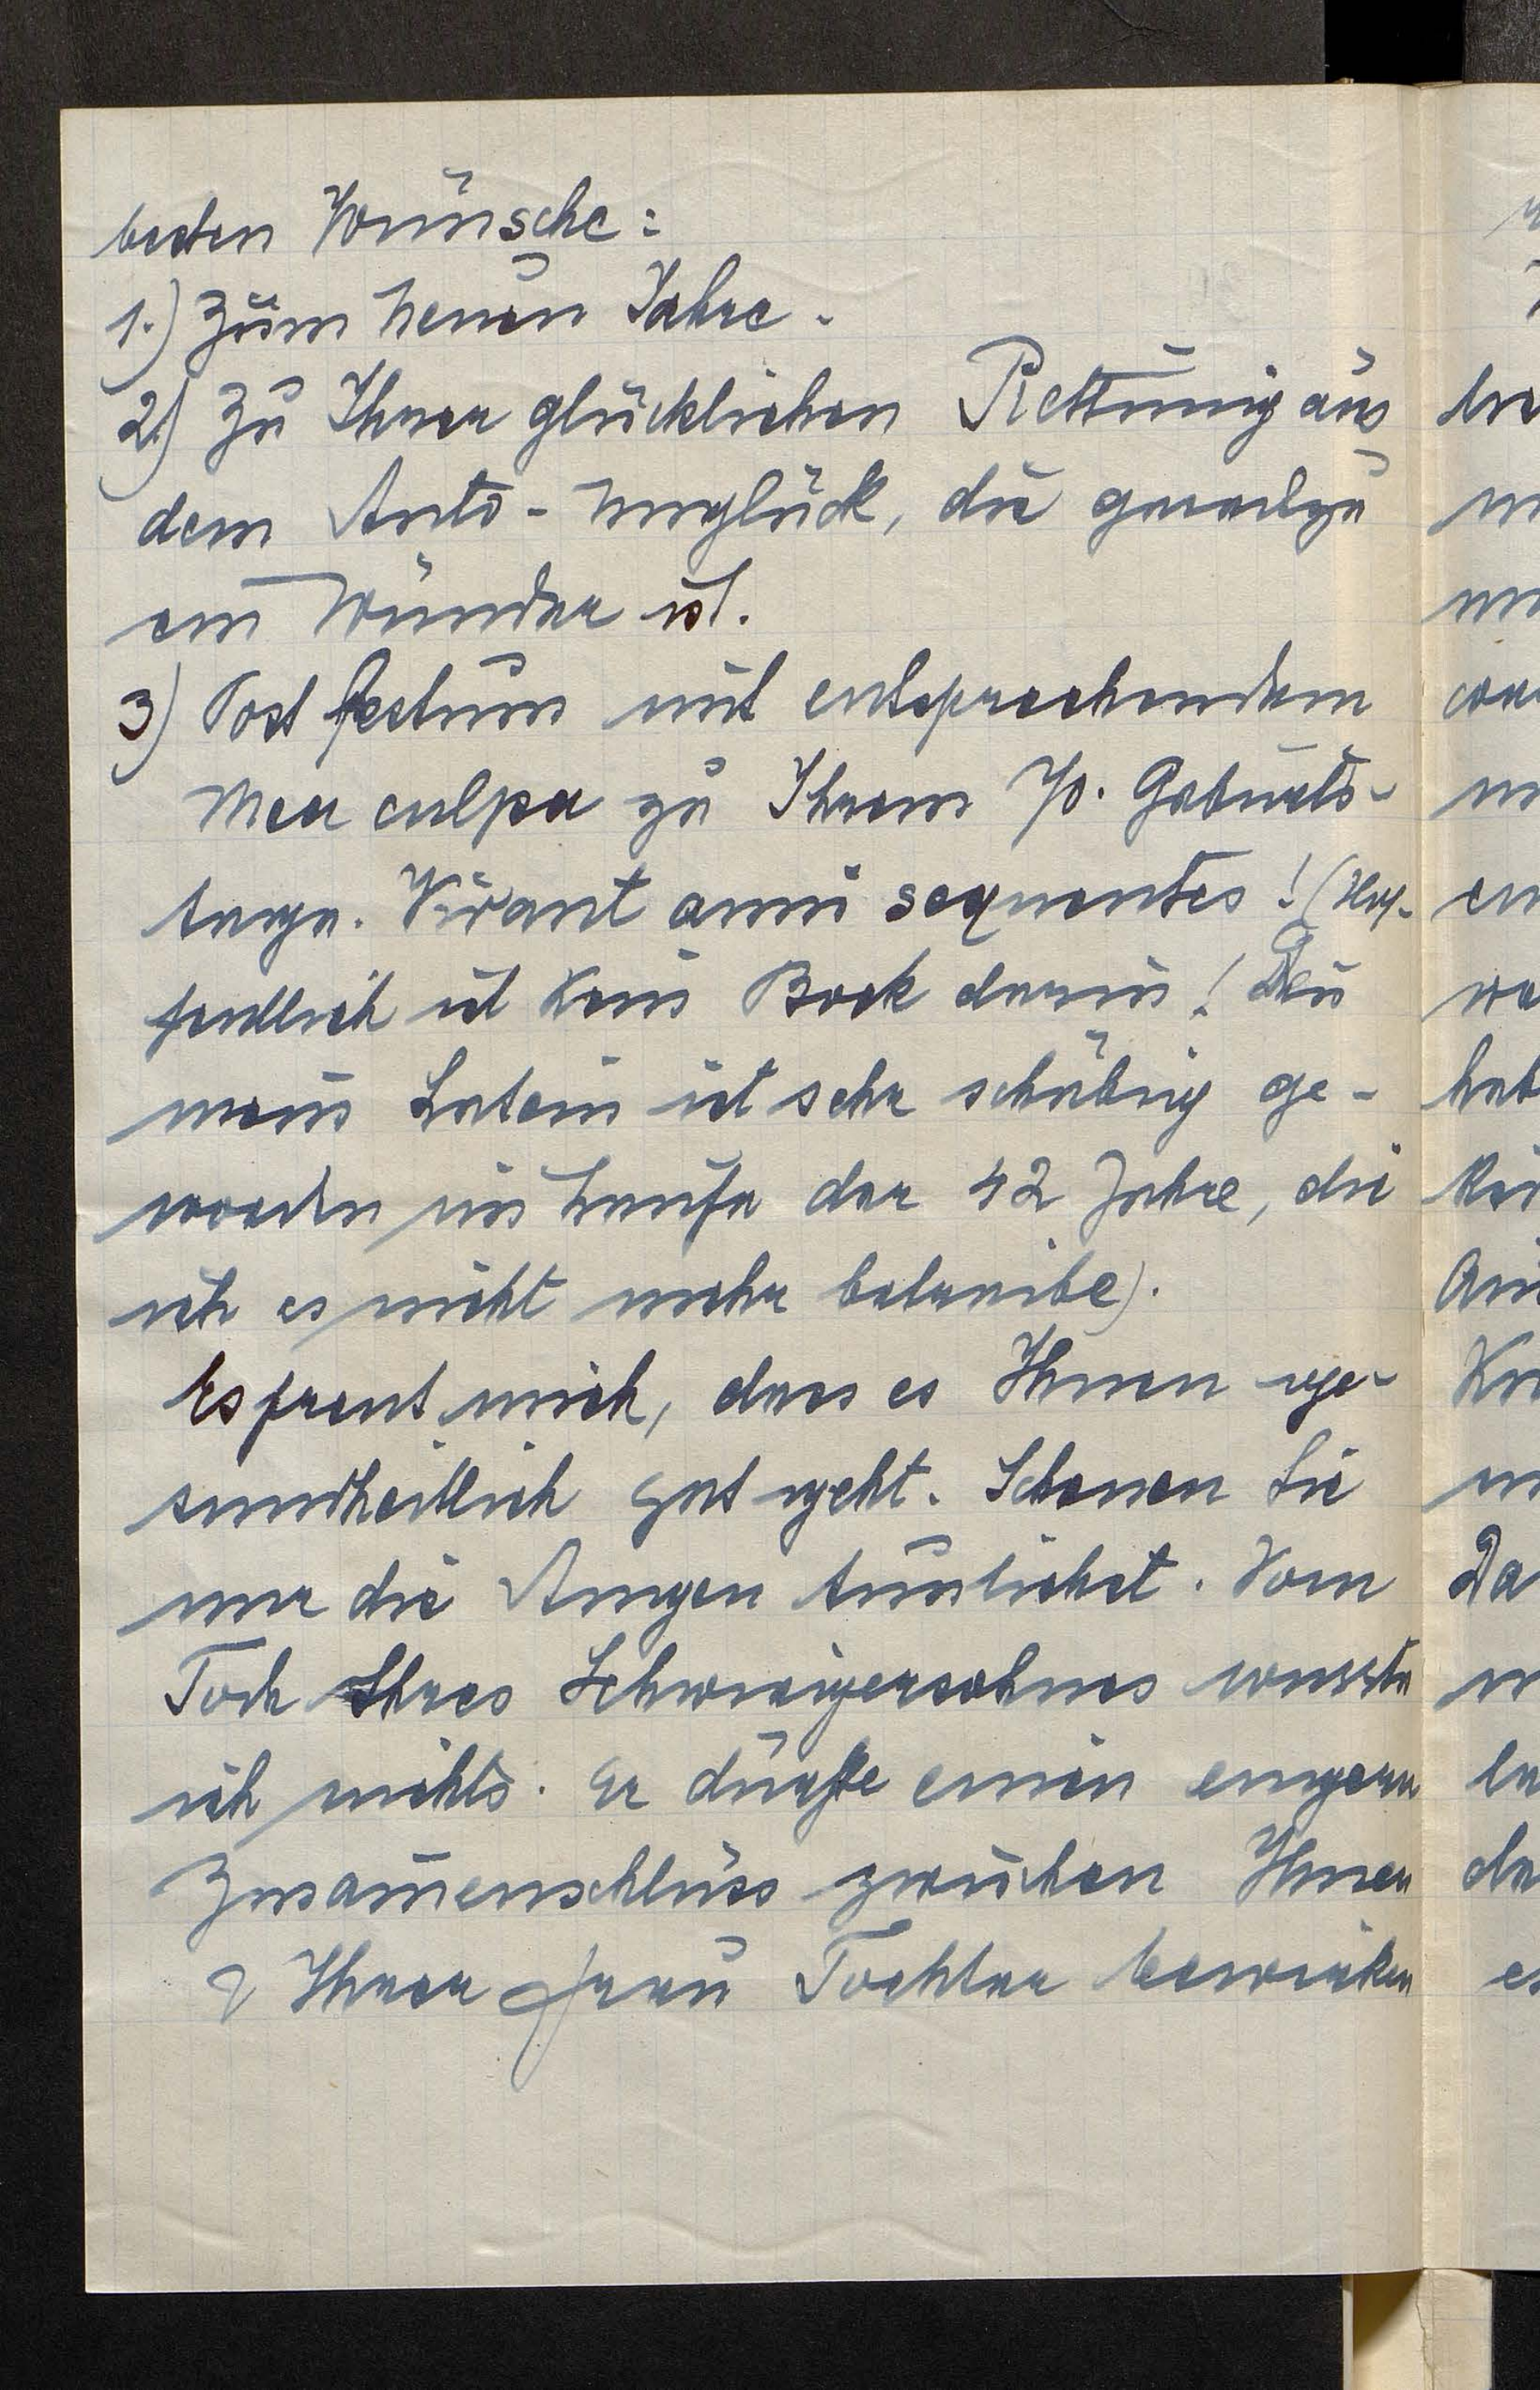 besten Wünsche:
1.) Zum Neuen Jahre.
2.) Zu Ihrer glücklichen Rettung aus
dem Auto-Unglück, die geradezu
ein Wunder ist.
3) Post festum mit entsprechendem
Mea culpa zu Ihrem 70. Geburts-
tage. Vivant anni sequentes! (Hof-
fentlich ist kein Bock darin! Den
mein Latein ist sehr schäbig ge-
worden im Laufe der 42 Jahre, die
ich es nicht mehr betreibe).
Es freut mich, dass es Ihnen ge-
sundheitlich gut geht. Schonen Sie
nur die Augen tunlichst. Vom
Tode Ihres Schwiegersohnes wusste
ich nichts. Er dürfte einen engern
Zusam̅enschluss zwischen Ihnen
& Ihrer Frau Tochter bewirken